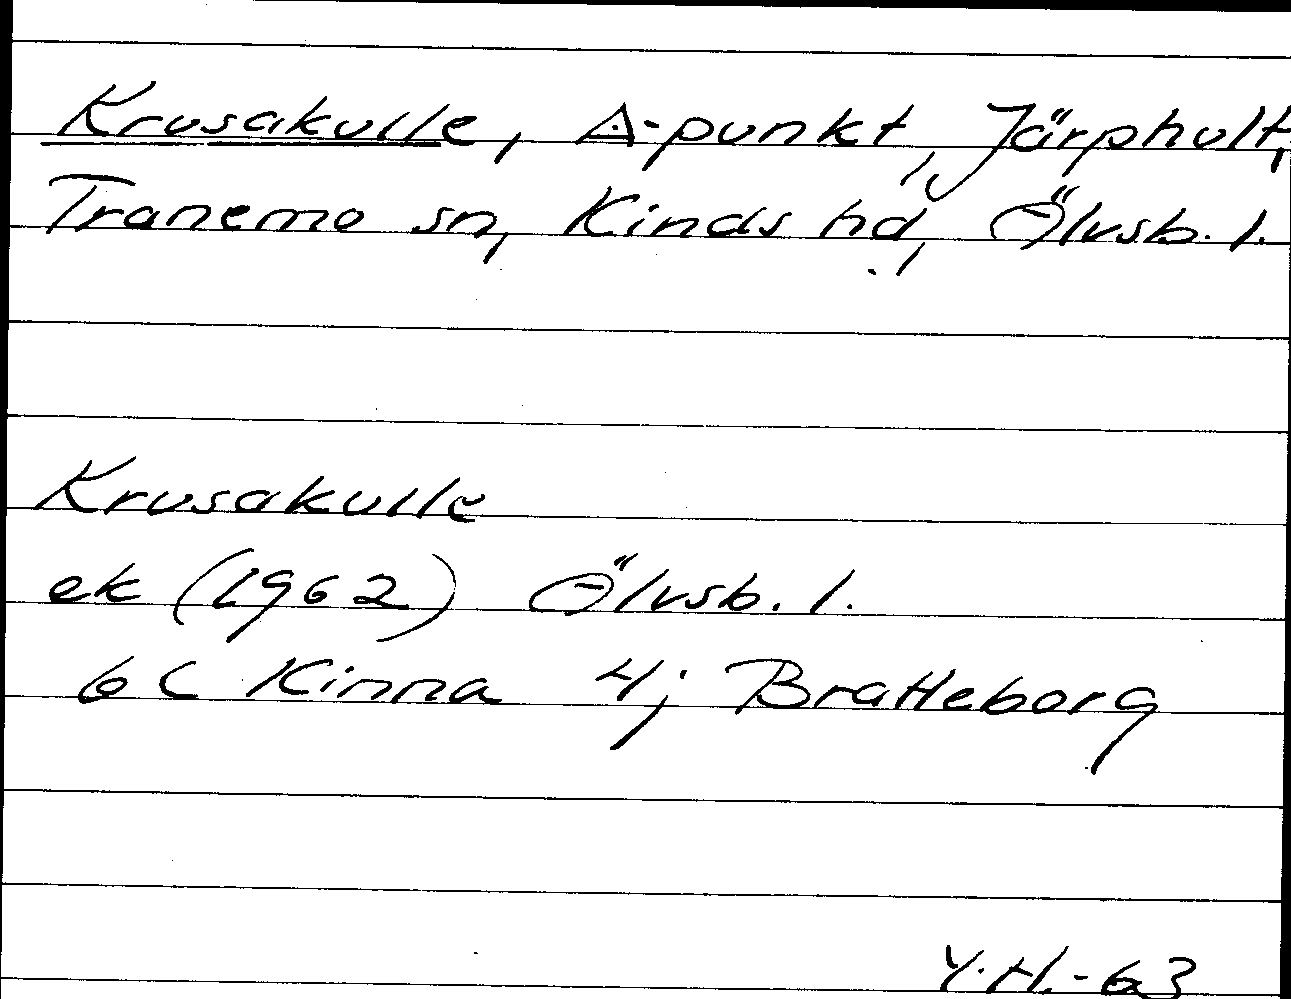 Krusakulle, A-punkt, Järphult,
Tranemo sn, Kinds hd, Älvsb. l.
Krusakulle
ek (1962) Älvsb. l.
6C Kinna 4j Bratteborg
Y.H.-63